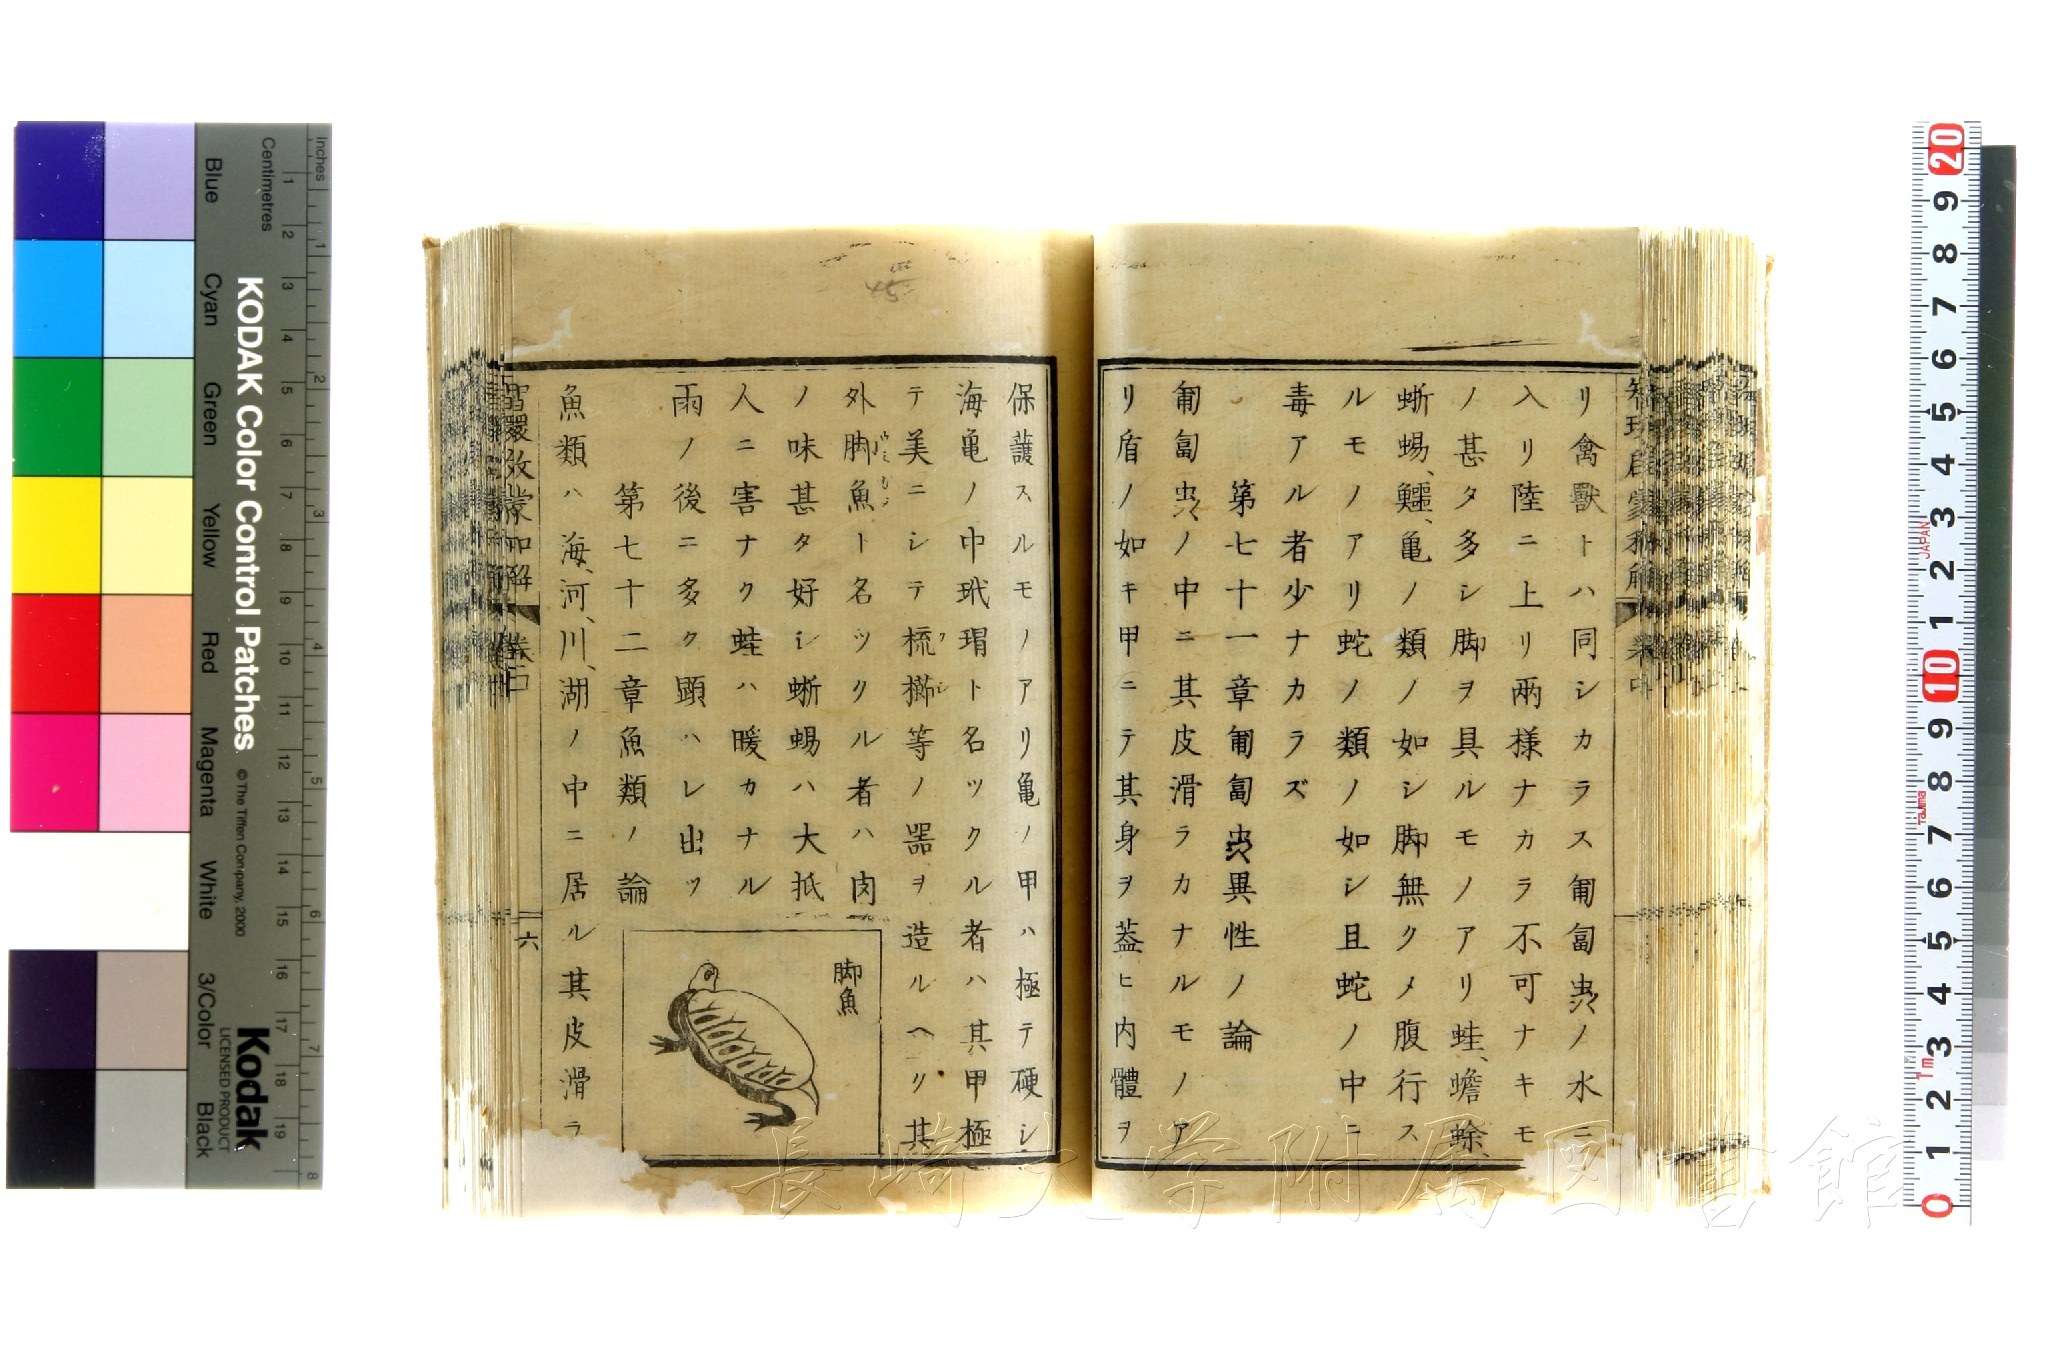 リ禽獸トハ同シカラス匍匐虫ノ水ニ
入リ陸ニ上リ兩様ナカラ不可ナキモ
ノ甚タ多シ脚ヲ具ルモノアリ蛙、蟾蜍、
蜥蜴、鱷、亀ノ類ノ如シ脚無クメ腹行ス
ルモノアリ蛇ノ類ノ如シ且蛇ノ中ニ
毒アル者少ナカラズ
第七十一章匍匐虫異性ノ論
匍匐虫ノ中ニ其皮滑ラカナルモノア
リ盾ノ如キ甲ニテ其身ヲ蓋ヒ内體ヲ
保護スルモノアリ亀ノ甲ハ極テ硬シ
海亀ノ中玳瑁ト名ツクル者ハ其甲極
テ美ニシテ梳櫛等ノ器ヲ造ルヘリ其
クシ
外脚魚ト名ツクル者ハ肉
ノ味甚タ好シ蜥蜴ハ大抵
人ニ害ナク蛙ハ暖カナル
雨ノ後ニ多ク顕ハレ出ツ
第七十二章魚類ノ論
魚類ハ海、河、川、湖ノ中ニ居ル其皮滑ラ
脚魚
六
長崎大学附属図書館
KODAK Color Control Patches
© The Tiffen Company, 2000
Kodak
LICENSED PRODUCT
Inches
Centimetres
Blue
Cyan
Green
Yellow
Red
Magenta
White
3/Color
Black
1 2 3 4 5 6 7 8 9 10 11 12 13 14 15 16 17 18 19
1 2 3 4 5 6 7 8
20 9 8 7 6 5 4 3 2 1 10 9 8 7 6 5 4 3 2 1 0
JAPAN
Tajima
1m